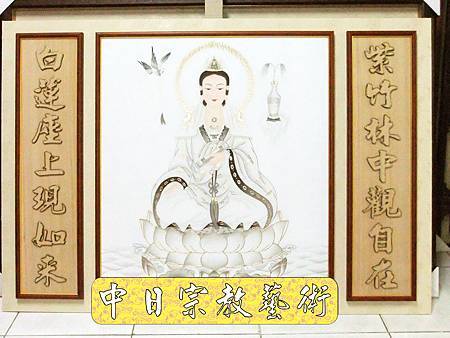 紫竹林中觀自在
白蓮座上現如來
中日宗教藝術